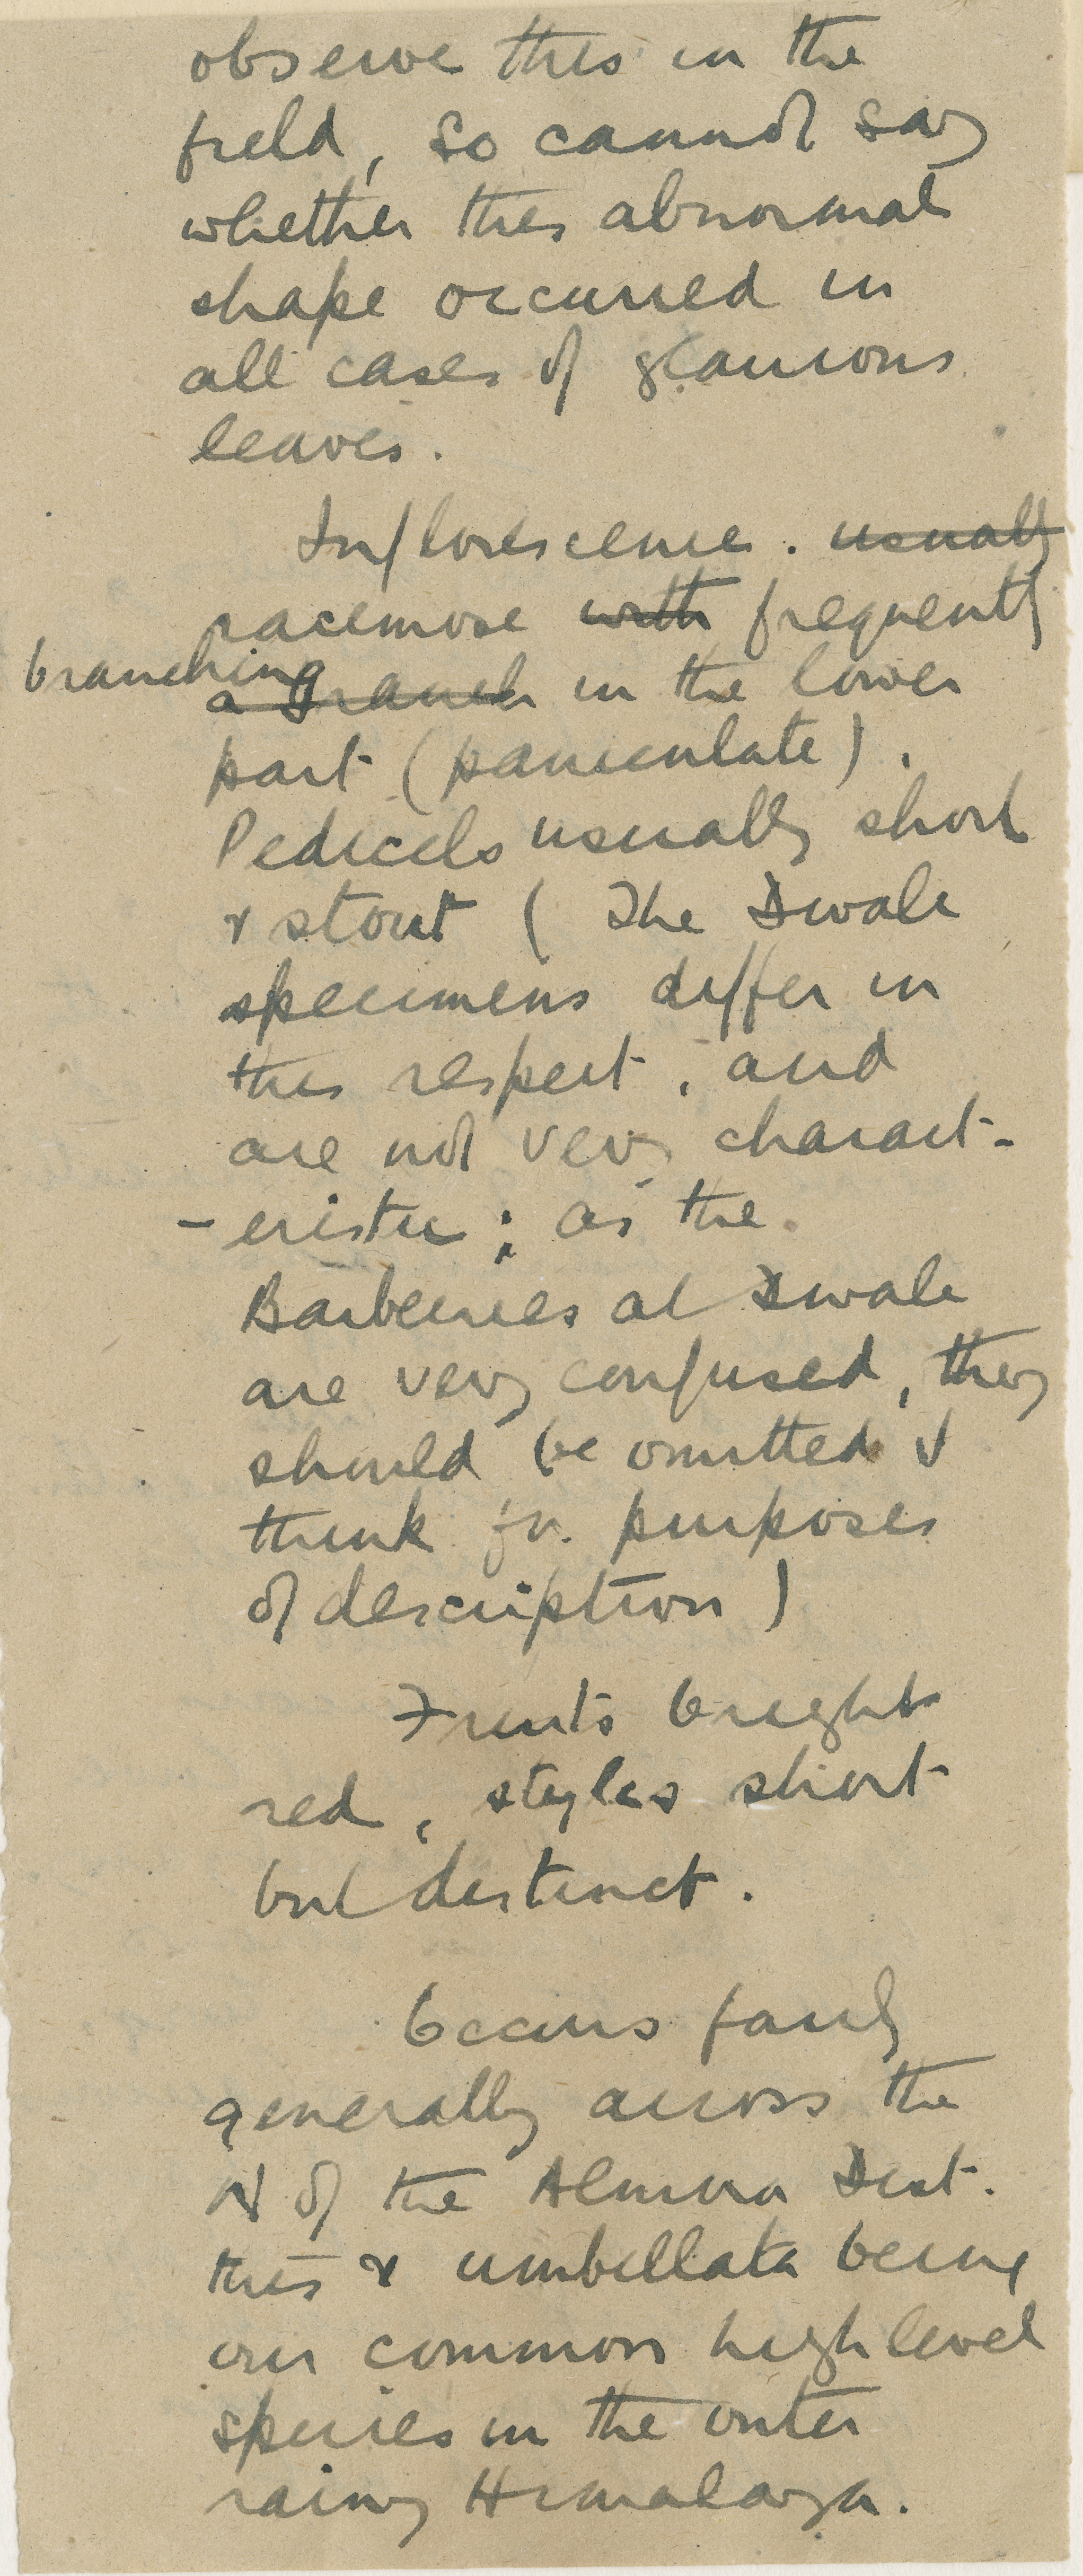 observe this in the
field, so cannot say
whether this abnormal
shape occurred in
all cases of glaucous
leaves.
Inflorescence. usually
racemose with frequently
branching
a branch in the lower
part (paniculate).
Pedicels usually short
& stout ( The Dwali
specimens differ in
this respect, and
are not very charact-
-eristic; as the
Barberries at Dwali
are very confused, they
should be omitted I
think for purposes
of description)
Fruits bright
red, styles short
but distinct.
Occurs fairly
generally across the
N of the Almora Dist.
this & umbellata being
our common high level
species in the outer
rainy Himalaya.